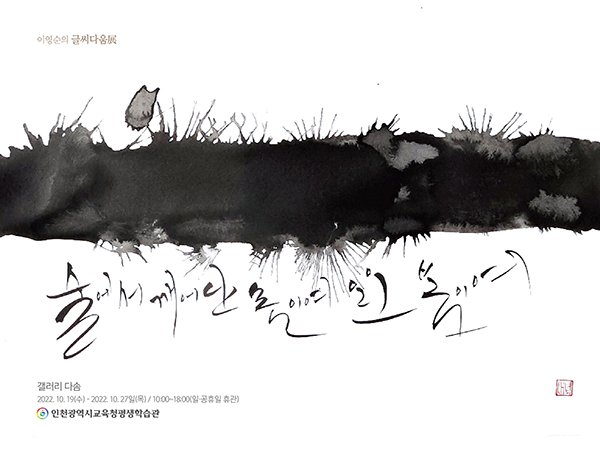 이영순의 글씨다움展
술에서 깨어난 봄이여 일의 봄이여
갤러리 다솜
2022. 10. 19(수) - 2022. 10. 27일(목) / 10:00~18:00(일·공휴일 휴관)
인천광역시교육청평생학습관